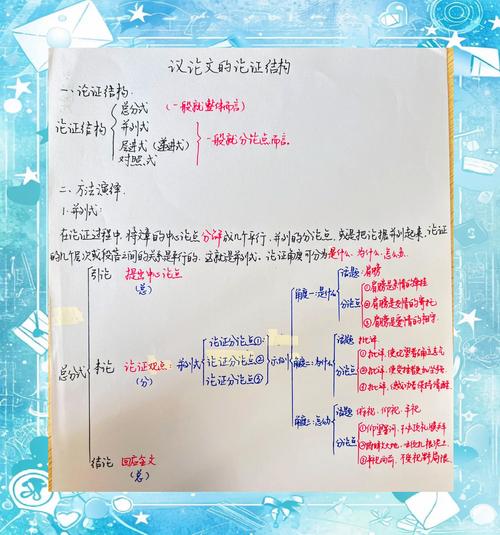 议论文的论证结构
一、论证结构.
论证结构
总分式 (一般就整体而言)
并列式
层进式 (递进式)
对照式
一般就分论点而言.
二、方法演绎.
1.并列式:
在论证过程中,将文章的中心论点分解成几个平行、并列的分论点,或是把论据并列起来,论证
的几个层次或段落之间的关系是平行的,这就是并列式。论证角度可分为是什么、为什么、怎么办.
总分式
引论 提出中心论点
(总)
本论 论证观点:
(分)
并列式
论证分论点①:
论证分论点②
论证分论点③
示例
角度一:是什么
话题: 肩膀
分论点
①肩膀是亲情的脊柱
②肩膀是爱情的寄托
③肩膀是友情的相守
角度二:为什么
话题 批评
分论点
①批评,使
②批评,使
③批评,
角度三:怎么办
话题 俯视、仰视、平视
分论点
①仰望星河,
②俯瞰大地,
③平视向前,不受视野局限.
结论 回应全文
(总)